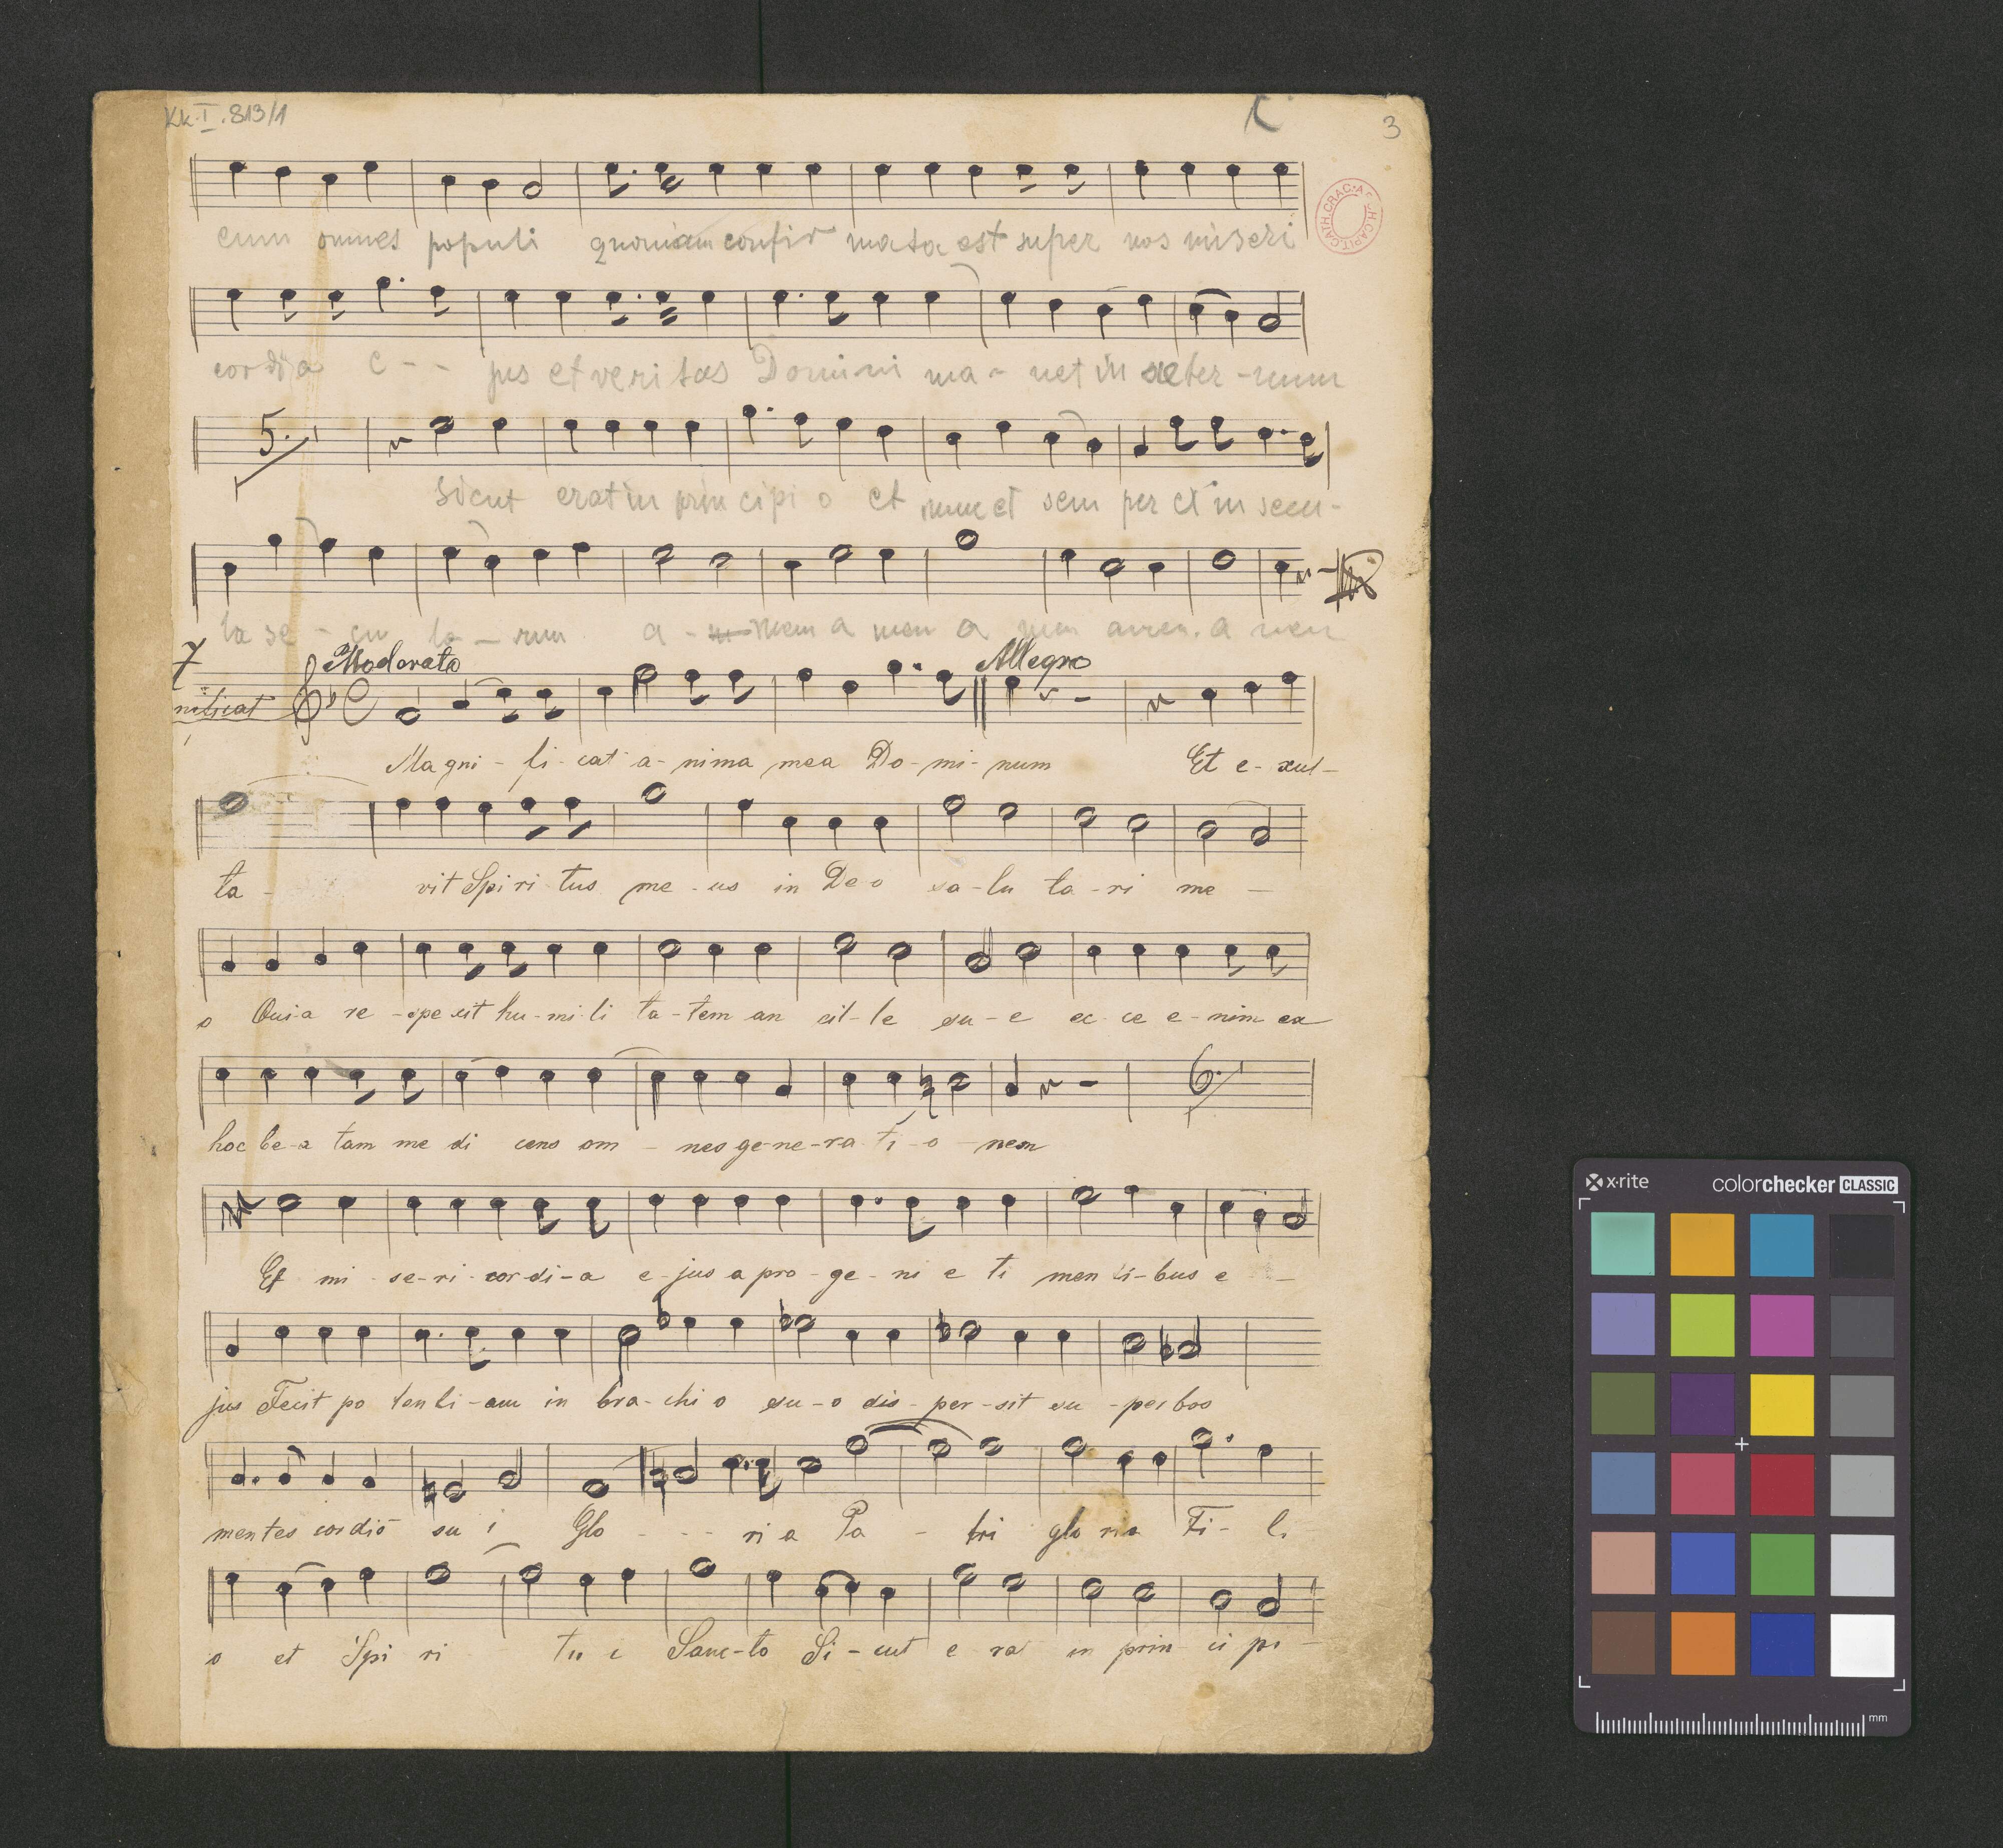 Kk.I.813/1
3
eum omnes populi quoniam confir mata est super nos miseri
cordia e - - jus et veritas Domini ma - net in aeter - num
5.
Sicut erat in principi o et nunc et sem per et in secu -
la se - cu la - rum a - men a men a men amen. a men
7 Moderato Allegro
nificat
Magni - fi - cat a - nima mea Do - mi - num Et e - xul -
ta - vit Spi ri - tus me - us in De o sa - lu ta - ri me -
o Qui-a re - spe xit hu - mi - li ta - tem an cil - le su - e ec - ce e - nim ex
6.
hoc be - a tam me di cens om - nes ge - ne - ra - ti - o - nem
Et mi - se - ri - cor - di - a e - jus a pro - ge - ni e ti men ti - bus e -
jus Fecit po ten ti - am in bra - chi o su - o dis - per - sit su - per bos
mentes cordis su i Glo - - - ri a Pa - tri glo ria Fi - li
o et Spi ri tu i Sanc - to Si - cut e ra in prin - ci pi -
x·rite colorchecker CLASSIC
mm